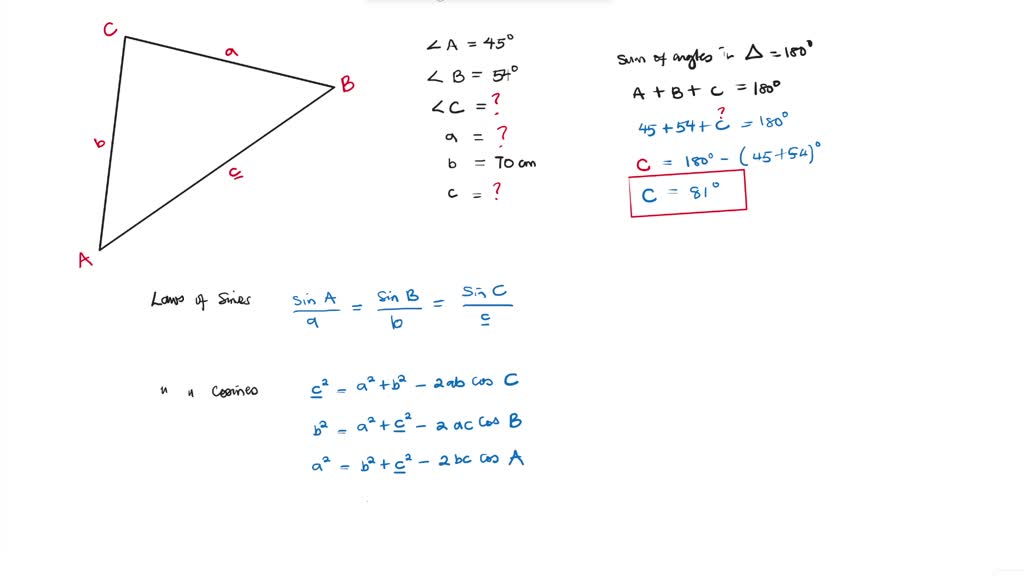 C
a
B
b
c
A
∠A = 45°
∠B = 54°
∠C = ?
a = ?
b = 70 cm
c = ?
Sum of angles in Δ = 180°
A + B + C = 180°
?
45 + 54 + C = 180°
C = 180° - (45+54)°
C = 81°
Laws of Sines sin A / a = sin B / b = sin C / c
" " Cosines c² = a² + b² - 2ab cos C
b² = a² + c² - 2ac cos B
a² = b² + c² - 2bc cos A